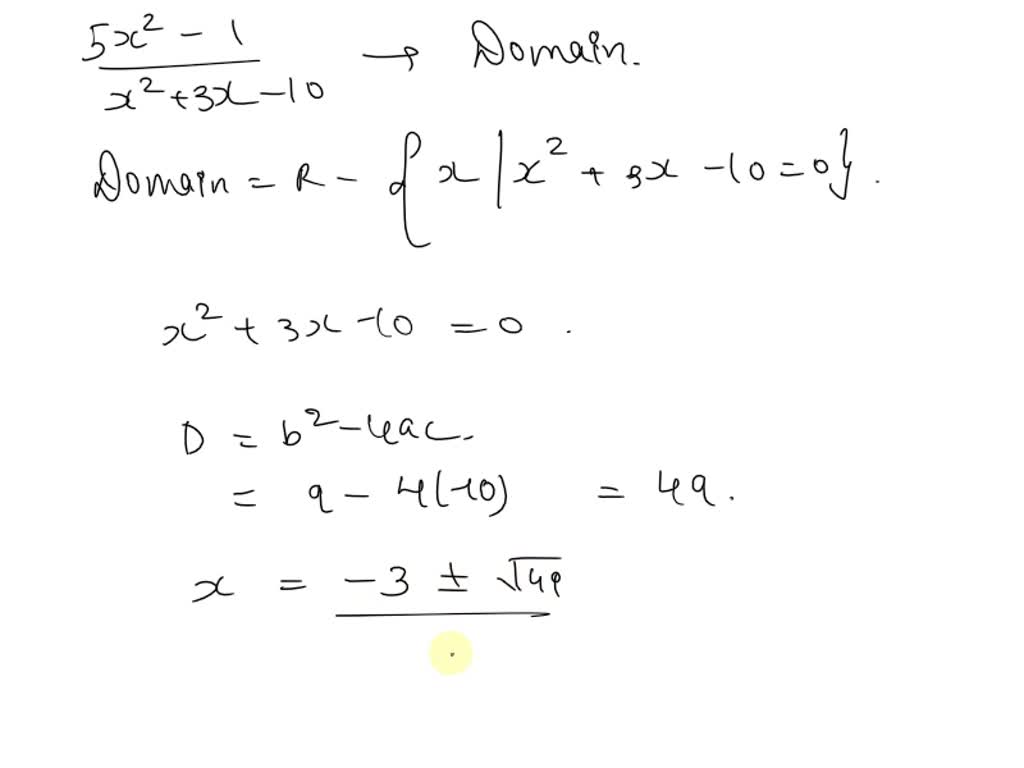 5x² - 1 / x² + 3x - 10 → Domain.
Domain = R - { x | x² + 3x - 10 = 0 } .
x² + 3x - 10 = 0 .
D = b² - 4ac.
= 9 - 4(-10) = 49.
x = -3 ± √49